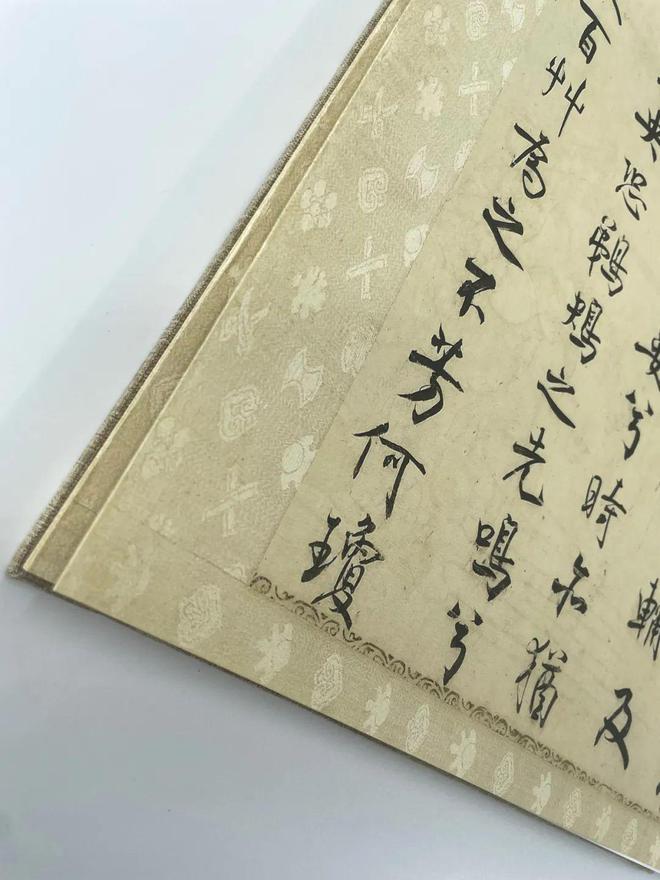 輔及
晏兮時亦猶
央恐鵜鴂之先鳴兮
百艸為之不芳何瓊